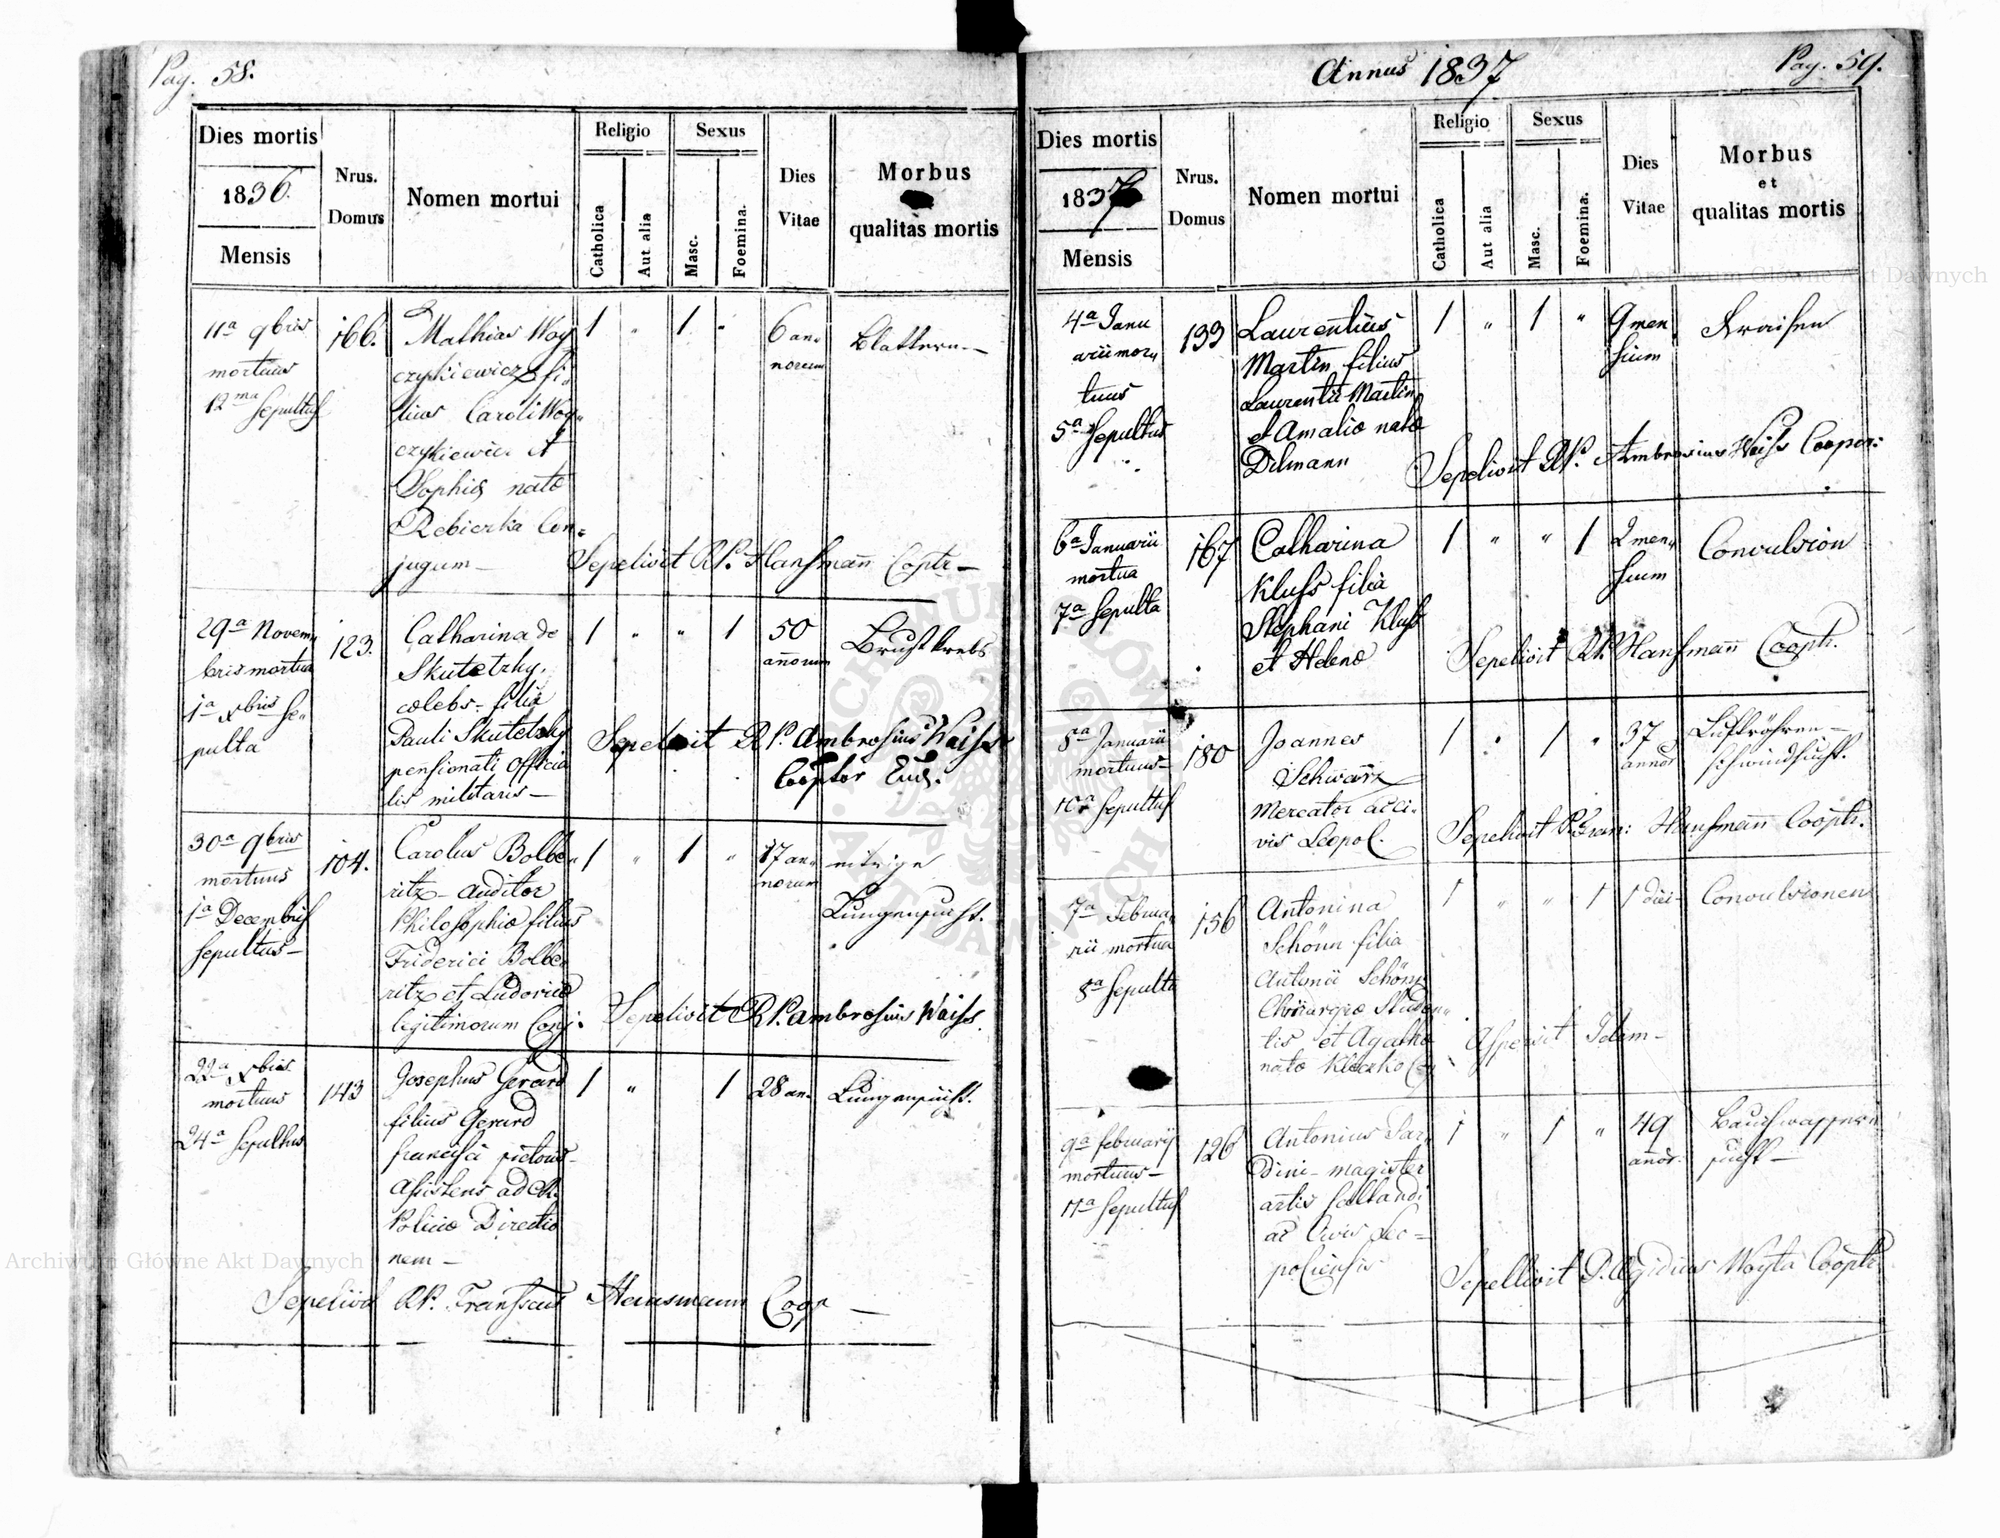 Pag. 58.
Dies mortis
1836.
Mensis
Nrus.
Domus
Nomen mortui
Religio
Catholica
Aut alia
Sexus
Masc.
Foemina.
Dies
Vitae
Morbus
qualitas mortis
11a 9bris
mortuus
12ma Sepultus
166.
Mathias Woy
czykiewicz fi
lius Caroli Woy
czykiewicz et
Sophia nata
Rebiczka Con=
jugum
1 " 1 "
6 an
norum
Blattern
Sepelivit RP. Hansmann Coptr
29a Novem
bris mortua
1a Xbris Se
pulta
123.
Catharina de
Skutetzky,
celebs - filia
Pauli Skutetzky
pensionati Officia
lis militaris
1 " " 1
50
annorum
Brustkrebs
Sepelivit RP. Ambrosius Waiss
Cooptor
30a 9bris
mortuus
1a Decembris
Sepultus
104.
Carolus Bolbe
ritz - auditor
Philosophiae filius
Friderici Bolbe
ritz et Ludovica
legitimorum Conj.
1 " 1 "
17 an
norum
eitrige
Lungensucht.
Sepelivit RP. Ambrosius Waiss
22a Xbris
mortuus
24a Sepultus
143
Josephus Gerard
filius Gerard
francisci pictoris
Assistens ad
Policiae Directio
nem
1 " 1
28 an.
Lungensucht.
Sepelivit RP. Hansmann Coop
Annus 1837
Pag. 59.
Dies mortis
1837
Mensis
Nrus.
Domus
Nomen mortui
Religio
Catholica
Aut alia
Sexus
Masc.
Foemina.
Dies
Vitae
Morbus
et
qualitas mortis
4a Janu
arii mor
tuus
5a Sepultus
133
Laurentius
Martin filius
Laurentii Martin
et Amalia nata
Dilmann
1 " 1 "
9 men
sium
Fraisen
Sepelivit RP. Ambrosius Waiss Cooper:
6a Januarii
mortua
7a Sepulta
167
Catharina
Kluss filia
Stephani Kluss
et Helena
1 " " 1
2 men
sium
Convulsion
Sepelivit RP. Hansmann Cooptr.
8a Januarii
mortuus
10a Sepultus
180
Joannes
Schwarz
Mercator ac Ci
vis Leopol.
1 " 1 "
37
annor
Luftröhren
schwindsucht.
Sepelivit Hansmann Cooptr.
7a Februa
rii mortua
8a Sepulta
156
Antonina
Schönn filia
Antonii Schönn
Chirurgiae Studen
tis et Agatha
nata
1 " " 1
1 diei
Convulsionen
Aspersit Idem
9a februarij
mortuus
11a Sepultus
126
Antonius Sar
dini - magister
artis saltandi
ac Civis Leo=
poliensis
1 " 1 "
49
annor.
Bauchwasser
sucht
Sepellivit P. Aegidius Woyta Cooptr
Archiwum Główne Akt Dawnych
Archiwum Główne Akt Dawnych
ARCHIWUM GŁÓWNE AKT DAWNYCH